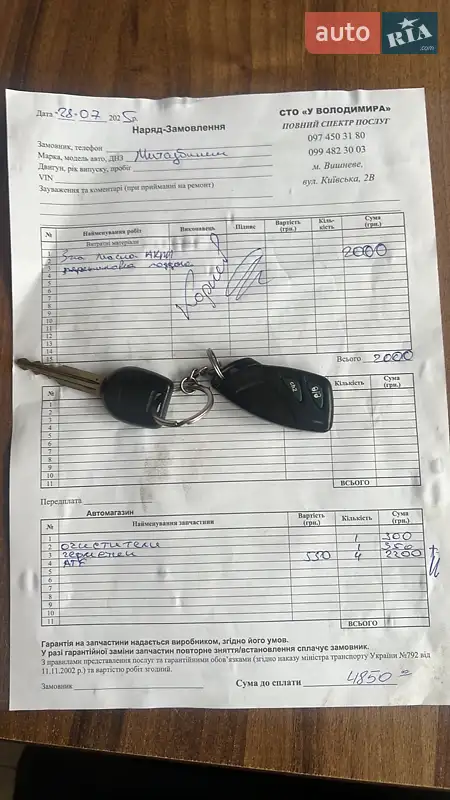 auto RIA .com
Дата "28-07 2025р.
СТО «У ВОЛОДИМИРА»
ПОВНИЙ СПЕКТР ПОСЛУГ
Наряд-Замовлення
097 450 31 80
099 482 30 03
м. Вишневе,
вул. Київська, 2В
Замовник, телефон
Марка, модель авто, ДНЗ
Двигун, рік випуску, пробіг
VIN
Зауваження та коментарі (при прийманні на ремонт)
№ Найменування робіт Виконавець Підпис Вартість (грн.) Кіль-кість Сума (грн.)
Витратні матеріали
1 Масла АКПП 2000
2
3
4
5
6
7
8
9
10
11
12
13
14
15
Всього 2000
№ Кількість Сума (грн.)
1
2
3
4
5
6
7
8
9
10
11 ВСЬОГО
Передплата
Автомагазин
№ Найменування запчастини Вартість (грн.) Кількість Сума (грн.)
1 очистители 1 300
2 герметик 1 350
3 ATF 550 4 2200
4
5
6
7
8
9
10
11 ВСЬОГО
Гарантія на запчастини надається виробником, згідно його умов.
У разі гарантійної заміни запчастин повторне зняття/встановлення сплачує замовник.
З правилами представлення послуг та гарантійними обов'язками (згідно наказу міністра транспорту України №792 від
11.11.2002 р.) та вартістю робіт згодний.
Замовник Сума до сплати 4850